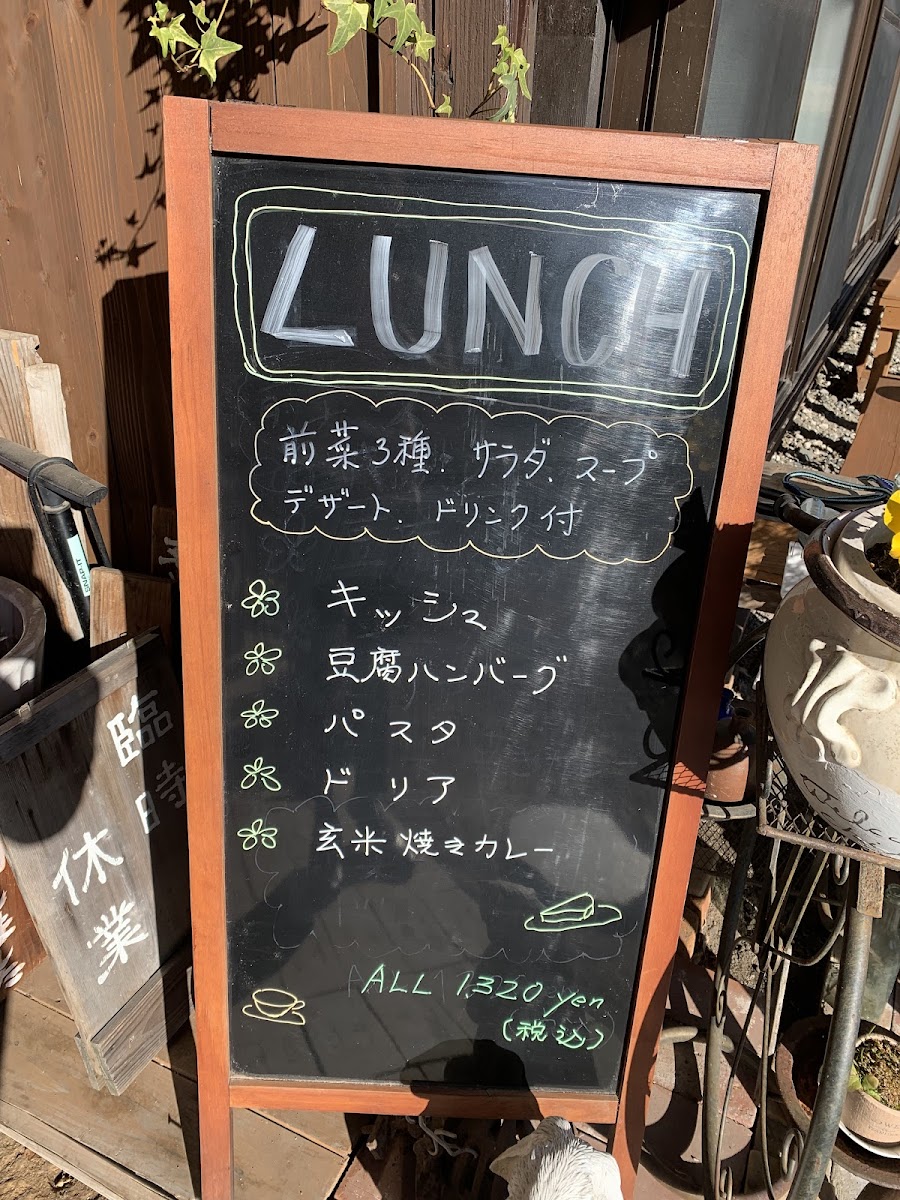 LUNCH
前菜3種、サラダ、スープ
デザート、ドリンク付
キッシュ
豆腐ハンバーグ
パスタ
ドリア
玄米焼きカレー
ALL 1320 yen
(税込)
臨時
休業
SNAP-IT